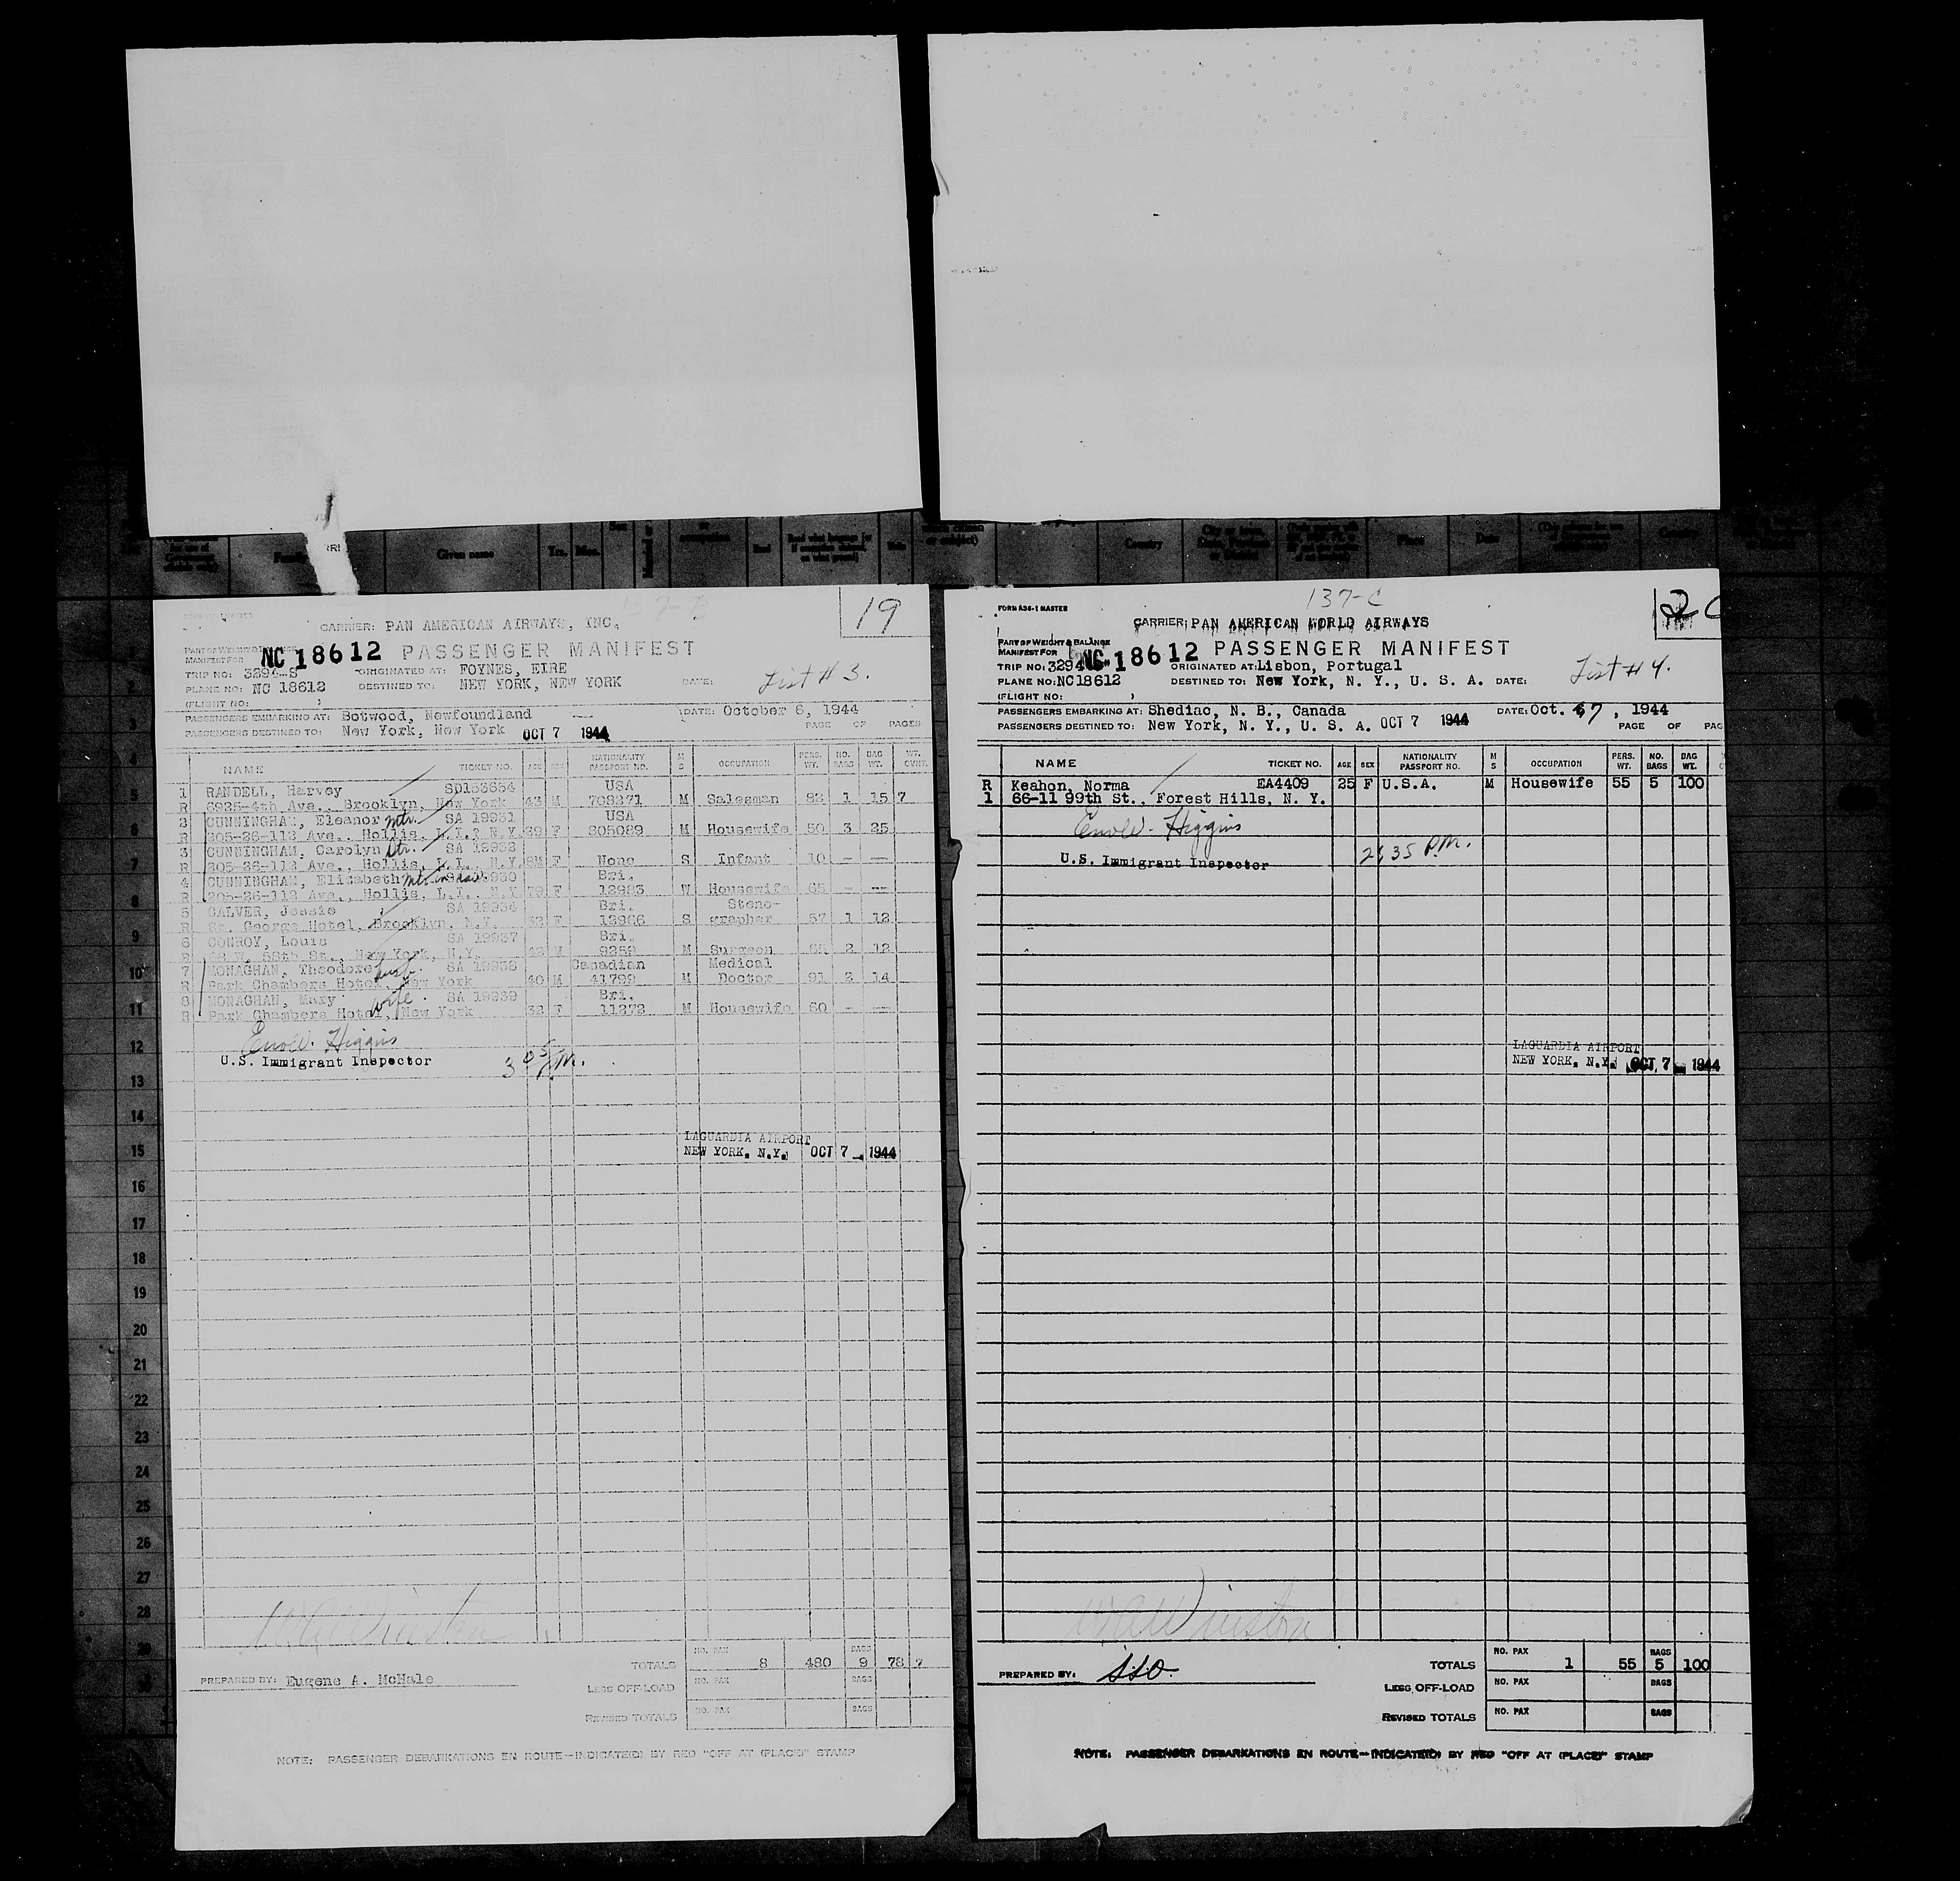 Given name
Yrs.
Mos.
Country
Place
Date
Country
137-B
19
CARRIER: PAN AMERICAN AIRWAYS, INC.
MANIFEST FOR NC 18612 PASSENGER MANIFEST
TRIP NO: 3294-S ORIGINATED AT: FOYNES, EIRE
PLANE NO: NC 18612 DESTINED TO: NEW YORK, NEW YORK DATE: List # 3.
(FLIGHT NO: )
PASSENGERS EMBARKING AT: Botwood, Newfoundland DATE: October 6, 1944
PASSENGERS DESTINED TO: New York, New York OCT 7 1944 PAGE OF PAGES
NAME TICKET NO. AGE SEX NATIONALITY PASSPORT NO. M S OCCUPATION PERS. WT. NO. BAGS BAG WT.
1 RANDELL, Harvey SD153654 USA
R 6925-4th Ave., Brooklyn, New York 43 M 708271 M Salesman 82 1 15 7
2 CUNNINGHAM, Eleanor Mtr. SA 19931 USA
R 205-26-112 Ave., Hollis, L.I., N.Y. 39 F 805089 M Housewife 50 3 25
3 CUNNINGHAM, Carolyn dtr. SA 19932
R 205-26-112 Ave., Hollis, L.I., N.Y. 8M F None S Infant 10 - --
4 CUNNINGHAM, Elizabeth Bri.
R 205-26-112 Ave., Hollis, L.I., N.Y. 79 F 12983 W Housewife 65 - --
5 CALVER, Jessie SA 19934 Bri. Steno-
R St. George Hotel, Brooklyn, N.Y. 32 F 12966 S grapher 57 1 12
6 CONROY, Louis SA 19937 Bri.
R 68 W. 58th St., New York, N.Y. 42 M 9259 M Surgeon 65 2 12
7 MONAGHAN, Theodore husb. SA 19938 Canadian Medical
R Park Chambers Hotel, New York 40 M 41799 M Doctor 91 2 14
8 MONAGHAN, Mary wife. SA 19939 Bri.
R Park Chambers Hotel, New York 32 F 11272 M Housewife 60 - --
Higgins
U.S. Immigrant Inspector 3 05 P.M.
LAGUARDIA AIRPORT
NEW YORK, N.Y. OCT 7 1944
W A Winston
TOTALS NO. PAX 8 480 BAGS 9 78 7
PREPARED BY: Eugene A. McHale
LESS OFF-LOAD NO. PAX BAGS
REVISED TOTALS NO. PAX BAGS
NOTE: PASSENGER DEBARKATIONS EN ROUTE—INDICATE(D) BY RED "OFF AT (PLACE)" STAMP
1
2
3
4
5
6
7
8
9
10
11
12
13
14
15
16
17
18
19
20
21
22
23
24
25
26
27
28
29
137-C
FORM A36-1 MASTER
20
CARRIER: PAN AMERICAN WORLD AIRWAYS
PART OF WEIGHT & BALANCE
MANIFEST FOR NC 18612 PASSENGER MANIFEST
TRIP NO: 3294 ORIGINATED AT: Lisbon, Portugal
PLANE NO: NC18612 DESTINED TO: New York, N. Y., U. S. A. DATE: List # 4.
(FLIGHT NO: )
PASSENGERS EMBARKING AT: Shediac, N. B., Canada DATE: Oct. 67, 1944
PASSENGERS DESTINED TO: New York, N. Y., U. S. A. OCT 7 1944 PAGE OF PAG
NAME TICKET NO. AGE SEX NATIONALITY PASSPORT NO. M S OCCUPATION PERS. WT. NO. BAGS BAG WT.
R Keahon, Norma EA4409 25 F U.S.A. M Housewife 55 5 100
1 66-11 99th St., Forest Hills, N. Y.
Higgins
U.S. Immigrant Inspector 2:35 P.M.
LAGUARDIA AIRPORT
NEW YORK, N.Y. OCT 7 1944
W A Winston
TOTALS NO. PAX 1 55 BAGS 5 100
PREPARED BY:
LESS OFF-LOAD NO. PAX BAGS
REVISED TOTALS NO. PAX BAGS
NOTE: PASSENGER DEBARKATIONS EN ROUTE—INDICATE(D) BY RED "OFF AT (PLACE)" STAMP